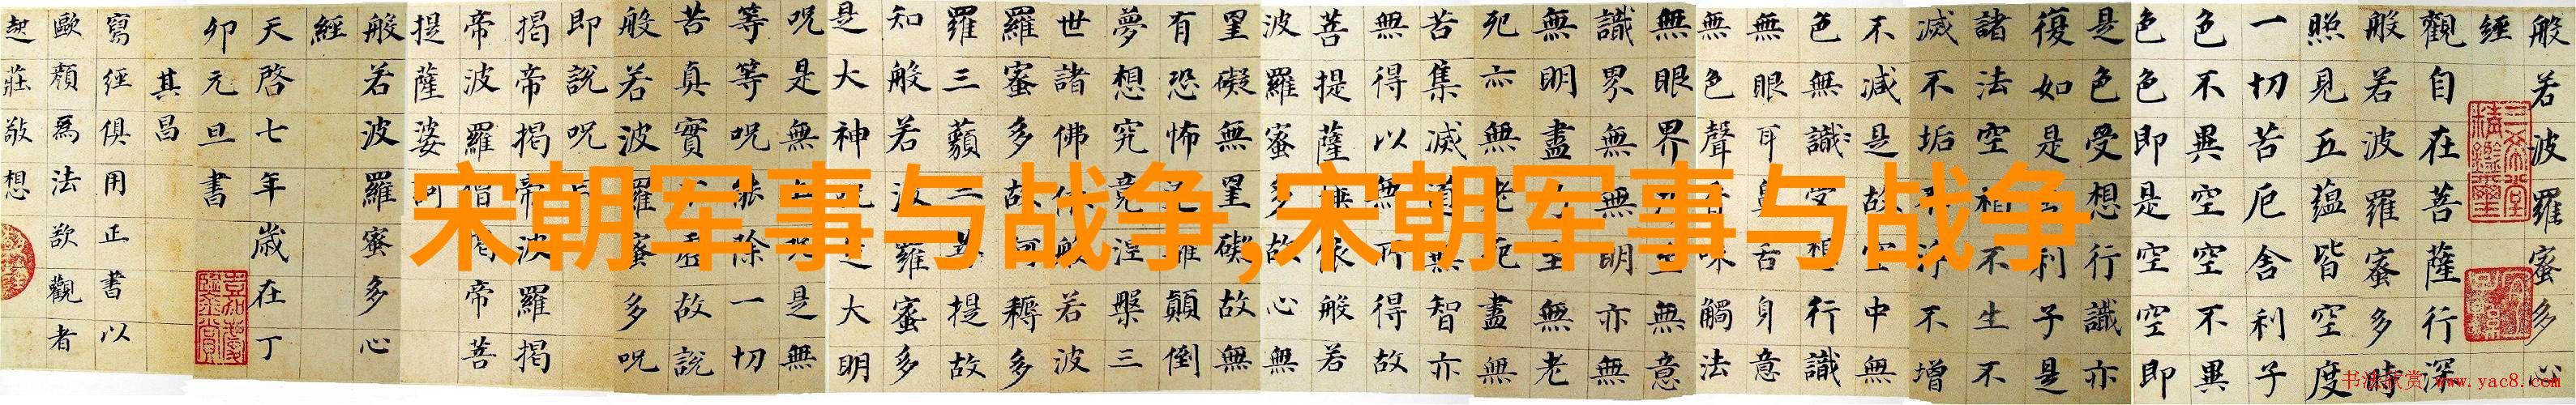 宋朝军事与战争,宋朝军事与战争
般若波羅蜜多心
經
觀自在菩薩行深
般若波羅蜜多時
照見五蘊皆空度
一切苦厄舍利子
色不異空空不異
色色即是空空即
是色受想行識亦
復如是舍利子是
諸法空相不生不
滅不垢不淨不增
不減是故空中無
色無識受想行識
無眼耳鼻舌身意
無色聲香味觸法
無眼界乃至無意
識界無無明亦無
無明盡乃至無老
死亦無老死盡無
苦集滅道無智亦
無得以無所得故
菩提薩埵依般若
波羅蜜多故心無
罣礙無罣礙故無
有恐怖遠離顛倒
夢想究竟涅槃三
世諸佛依般若波
羅蜜多故耨多
羅三藐三菩提故
知般若波羅蜜多
是大神呪是大明
呪是無上呪是無
等等呪能除一切
苦真實不虛故說
般若波羅蜜多呪
即說呪曰
揭帝揭帝波羅揭
帝波羅僧揭帝菩
提薩婆訶
般若波羅蜜多心
經
天啓七年歲在丁
卯元旦書
其昌
寫經俱用正書以
歐顏爲法欲觀者
起莊敬想
三希堂精鑑璽
书法欣赏 www.yac8.com